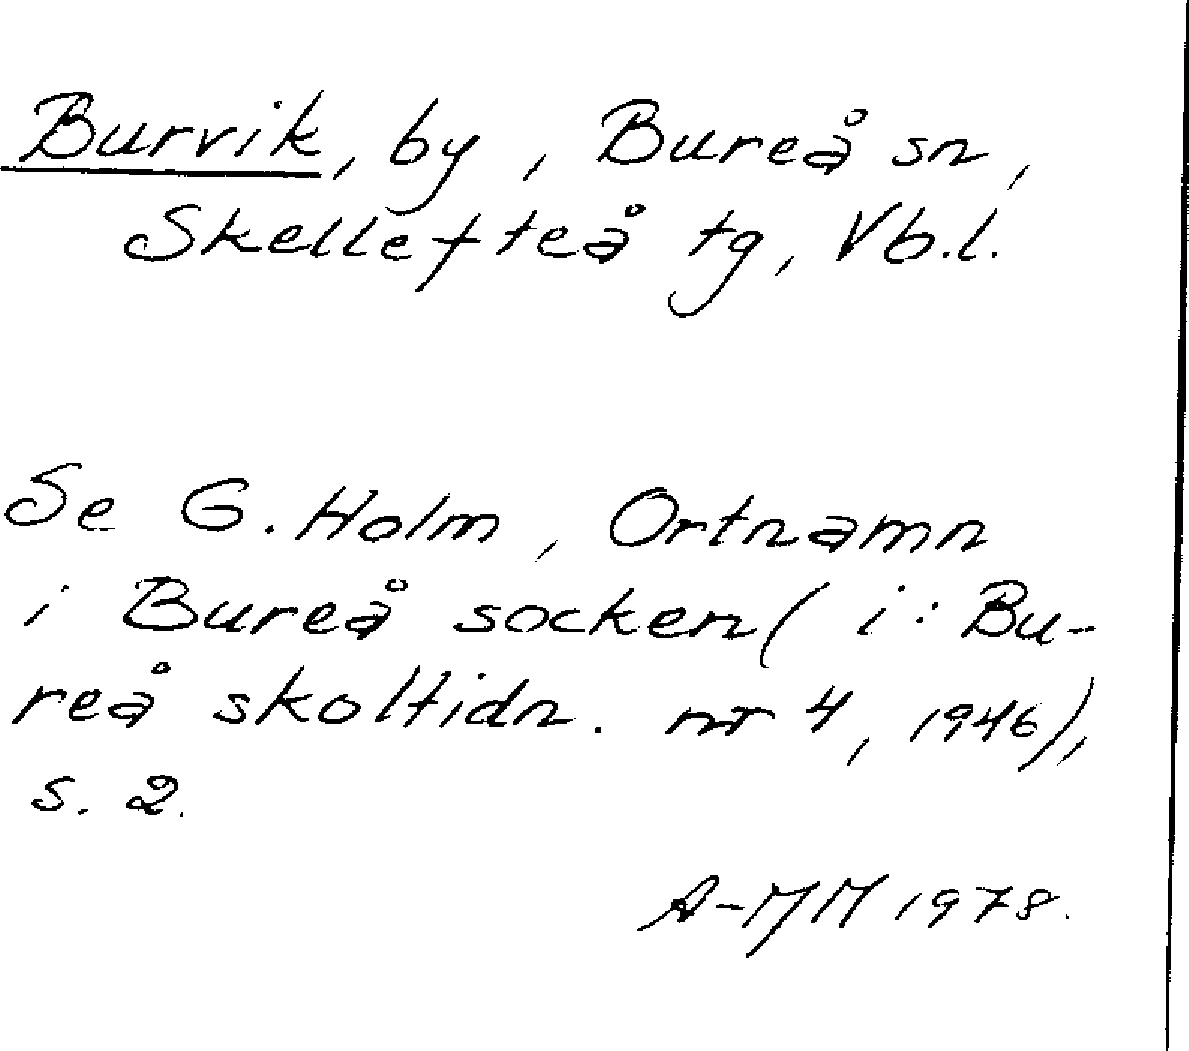 Burvik, by, Bureå sn,
Skellefteå tg, Vb.l.
Se G. Holm, Ortnamn
i Bureå socken (i: Bu-
reå skoltidn. nr 4, 1946),
s. 2.
A-MM 1978.